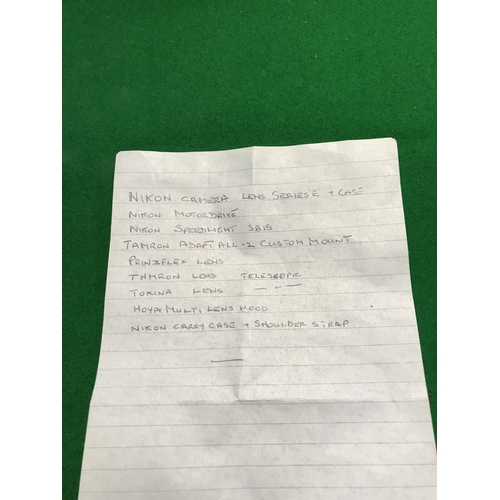 NIKON CAMERA LENS SERIES 'E' + CASE
NIKON MOTORDRIVE
NIKON SPEEDLIGHT SB15
TAMRON ADAPTALL-2 CUSTOM MOUNT
PRINZFLEX LENS
TAMRON LENS TELESCOPIC
TOKINA LENS — " —
HOYA MULTI LENS HOOD
NIKON CARRY CASE + SHOULDER STRAP